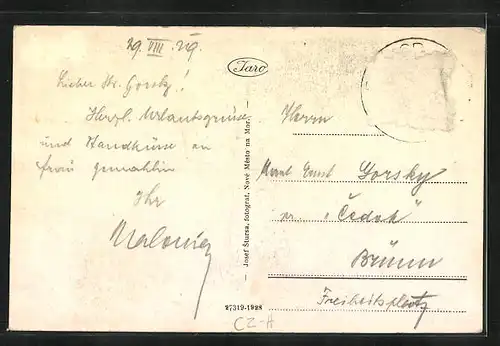 29. VIII. 29.
Lieber Hr. Gorsky!
Herzl. Urlaubsgrüsse
und Handküsse an
Frau Gemahlin
Ihr
Taro
Josef Štursa, fotograf, Nové Město na Mor.
27319-1928
Herrn
Ernst Gorsky
"Čedok"
Brünn
Freiheitsplatz
CZ-H